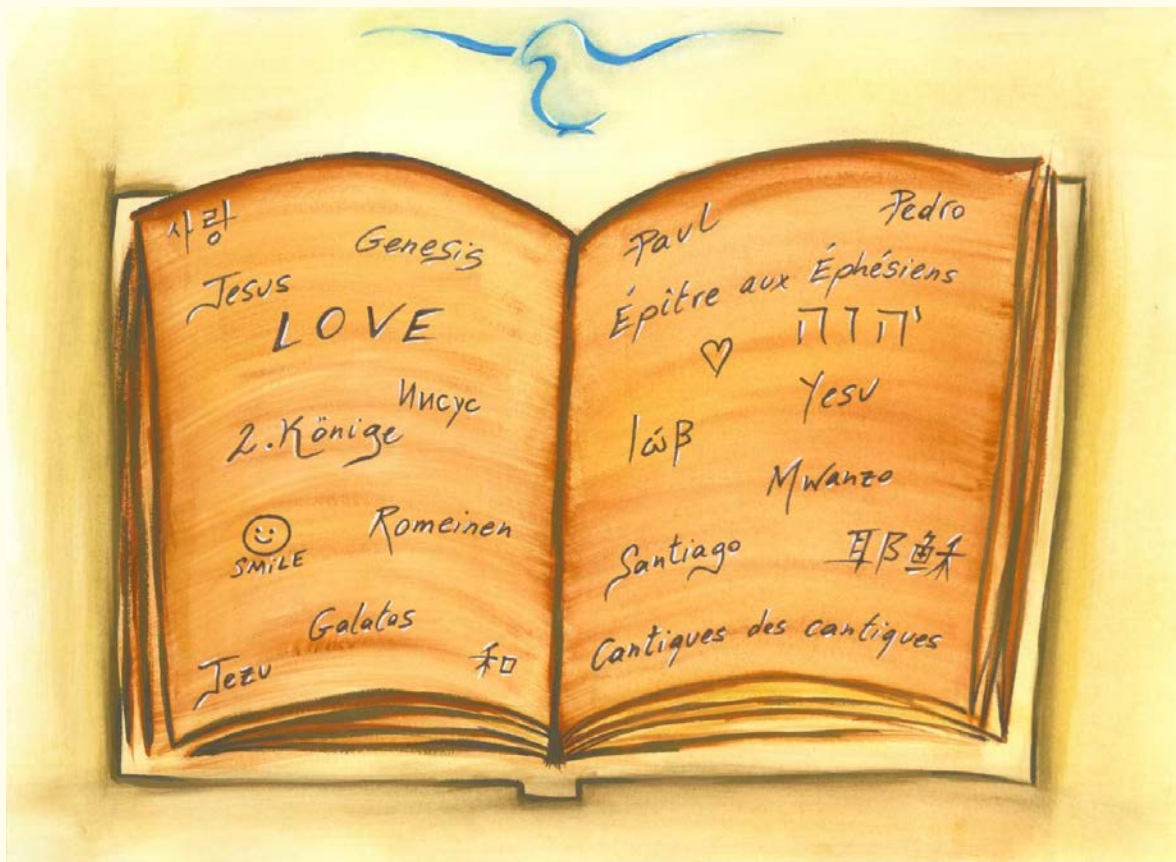 사랑
Genesis
Jesus
LOVE
Иисус
2. Könige
Romeinen
SMiLE
Galatas
Jezu
和
Paul
Pedro
Épître aux Éphésiens
יהוה
Yesu
Ιώβ
Mwanzo
Santiago
耶穌
Cantiques des cantiques